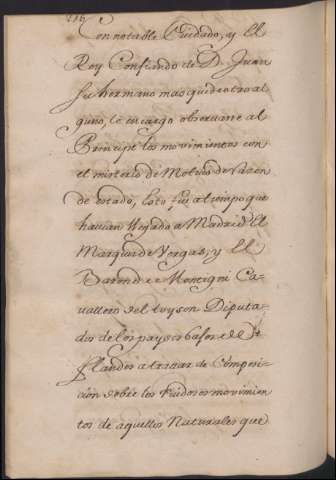 216
Con notable Cuidado, y El
Rey Confiando de D. Juan
su hermano mas que de otro al
guno, le encargo observarse al
Principe los movimientos con
el misterio de Motivo de Razon
de estado, esto fue a tiempo que
havian llegado a Madrid El
Marques de Vergas, y El
Baron de Montigni Ca-
vallero del tuyson Diputa-
dos de los payses bajos de
Flandes a tratar de Compos-
cion sobre los ruidosos movimien
tos de aquellos Naturales que